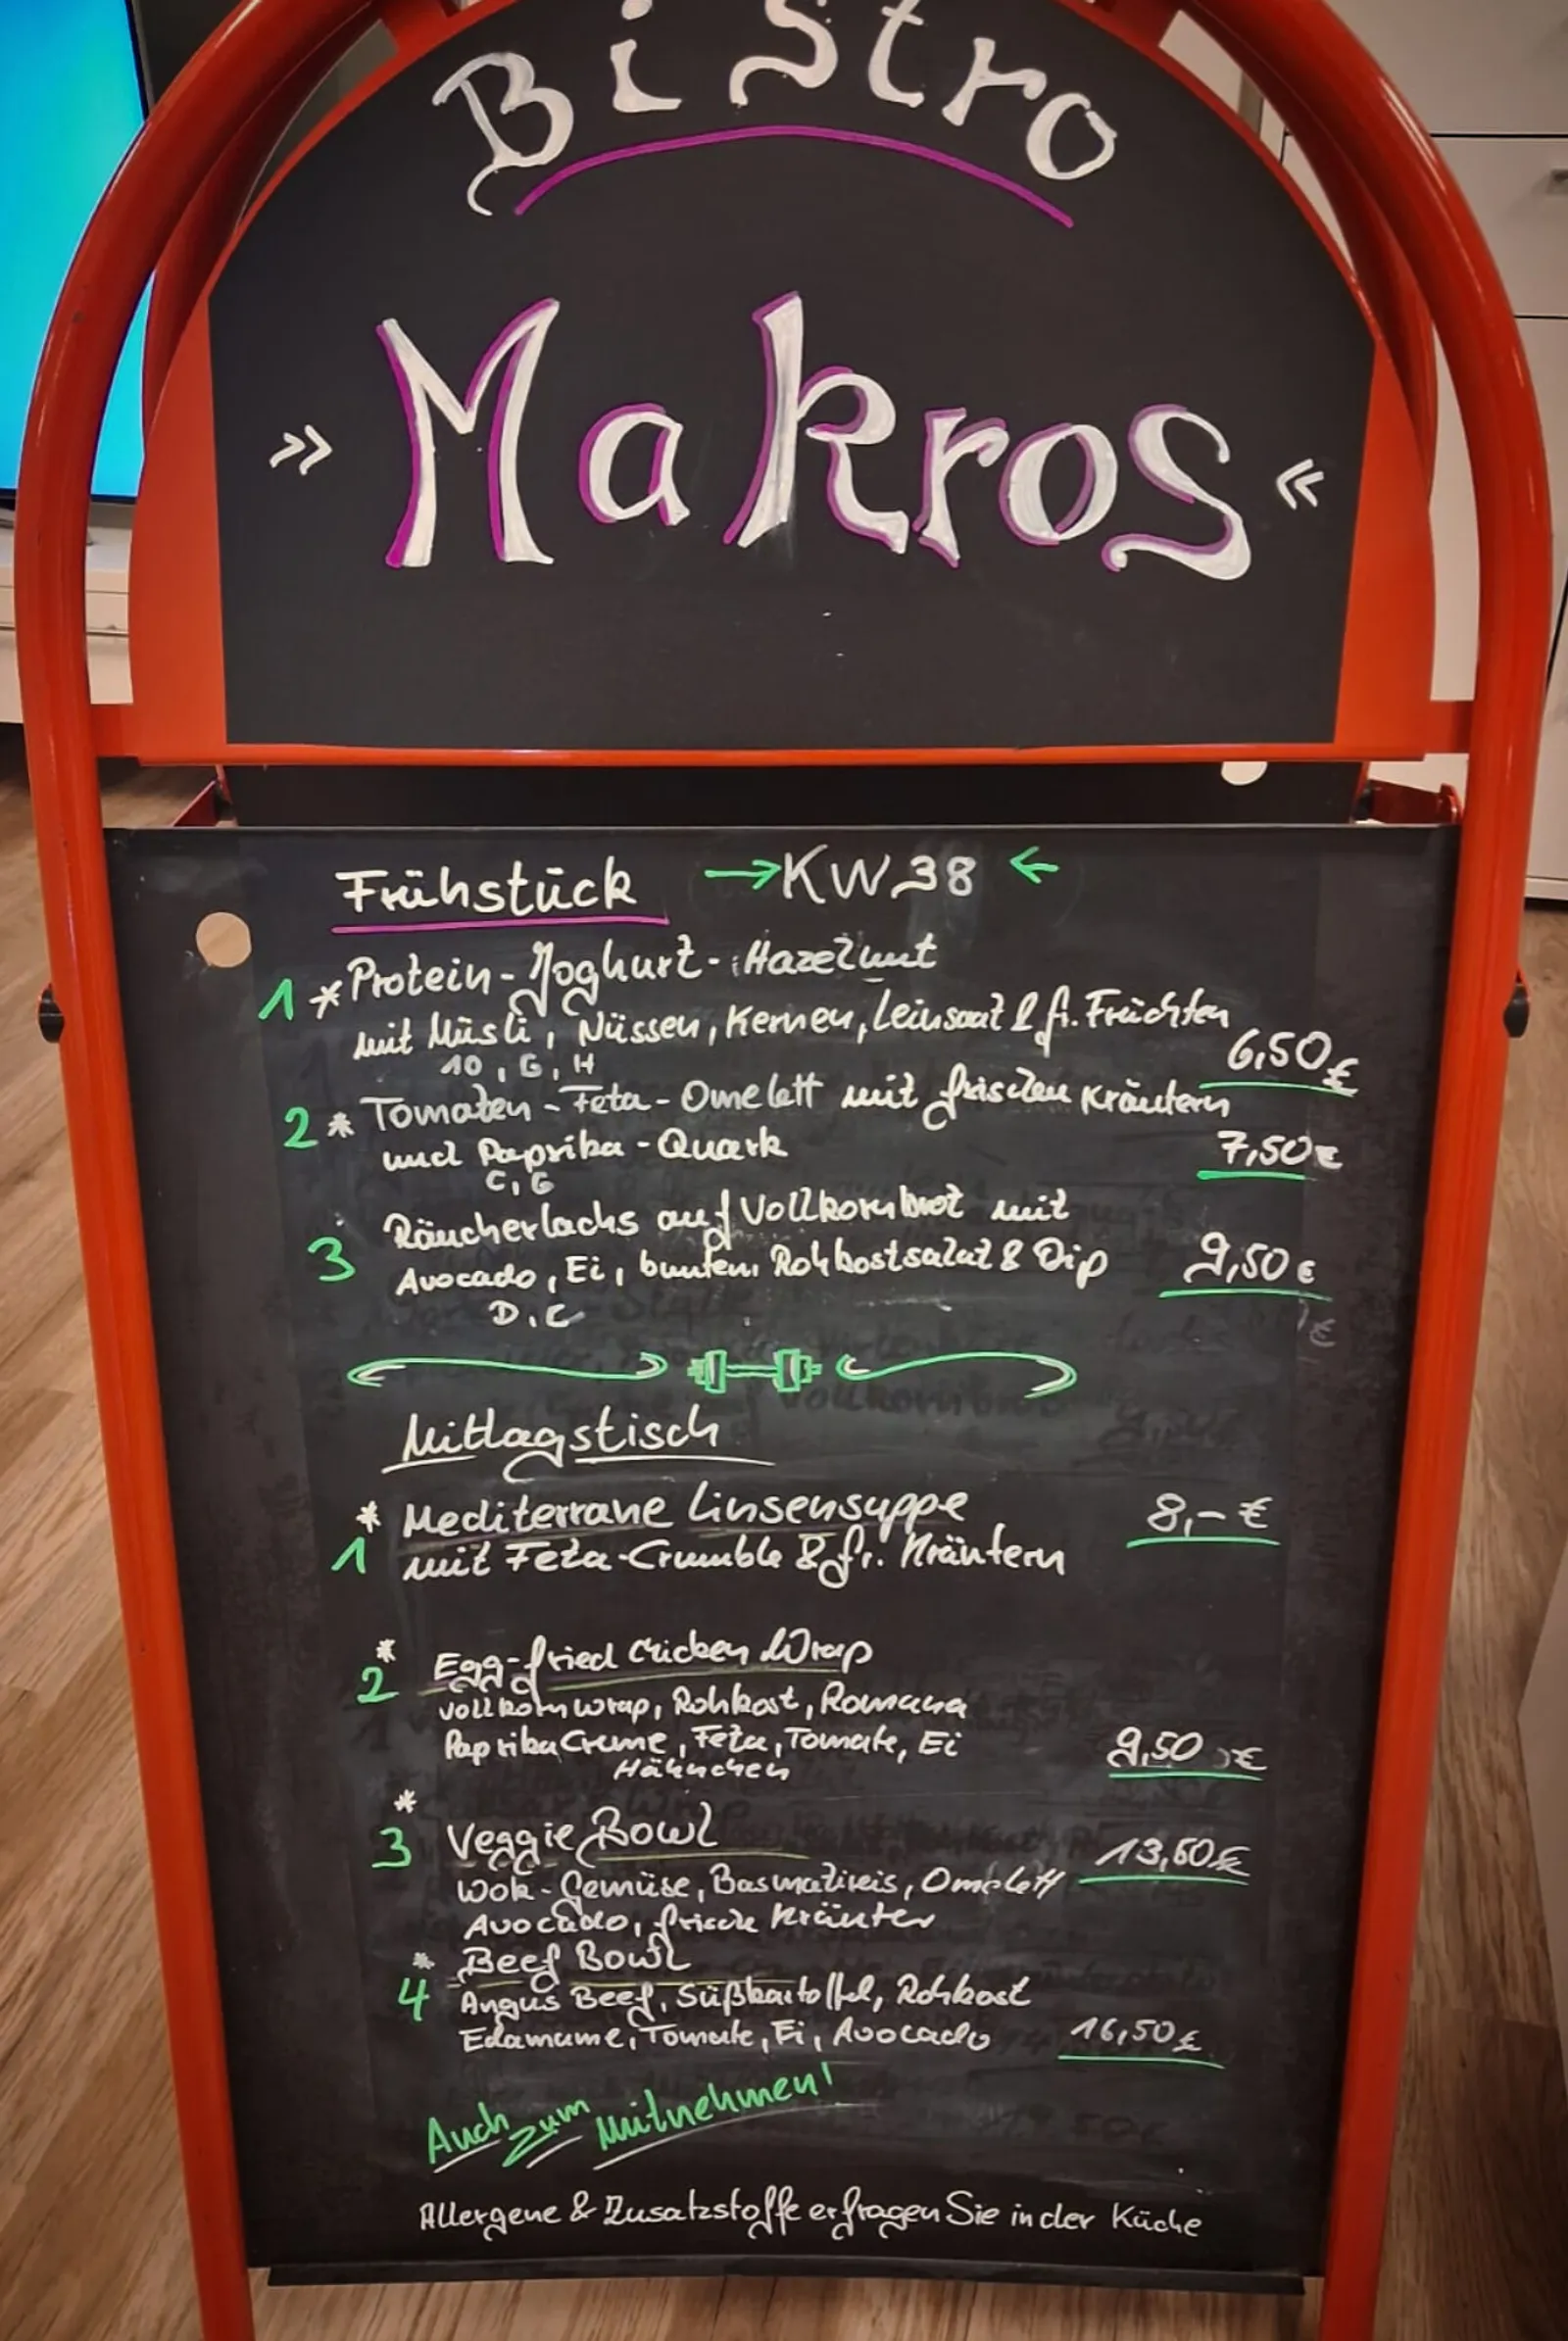 Bistro
» Makros «
Frühstück → KW 38 ←
1 * Protein-Joghurt-Hazelnut
mit Müsli, Nüssen, Kernen, Leinsaat & fr. Früchten
6,50€
10, G, H
2 * Tomaten-Feta-Omelett mit frischen Kräutern
und Paprika-Quark 7,50€
C, G
3 Räucherlachs auf Vollkornbrot mit
Avocado, Ei, buntem Rohkostsalat & Dip 9,50€
D, C
Mittagstisch
* Mediterrane Linsensuppe 8,-€
1 mit Feta-Crumble & fr. Kräutern
* Egg-fried Chicken Wrap
2 Vollkornwrap, Rohkost, Romana
Paprika Creme, Feta, Tomate, Ei 9,50 €
Hähnchen
*
3 Veggie Bowl 13,50€
Wok-Gemüse, Basmatireis, Omelett
Avocado, frische Kräuter
* Beef Bowl
4 Angus Beef, Süßkartoffel, Rohkost
Edamame, Tomate, Ei, Avocado 16,50€
Auch zum Mitnehmen!
Allergene & Zusatzstoffe erfragen Sie in der Küche